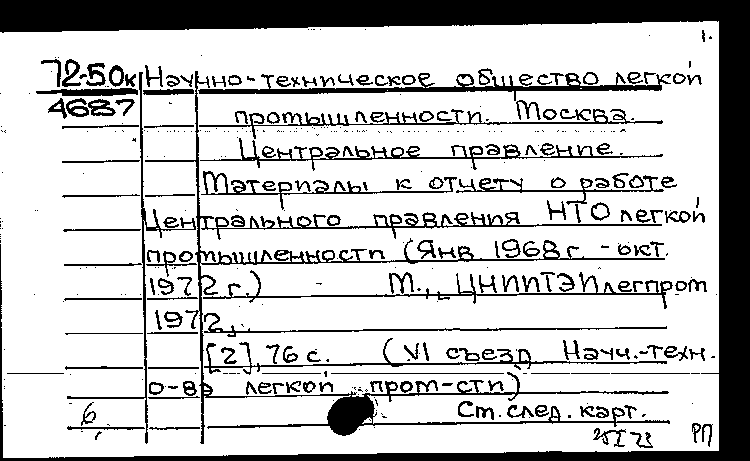 1.
72-50к Научно-техническое общество легкой
4687 промышленности. Москва.
Центральное правление.
Материалы к отчету о работе
Центрального правления НТО легкой
промышленности (Янв. 1968 г. - окт.
1972 г.) М., ЦНИИТЭИлегпром
1972.
[2], 76 с. (VI съезд Науч.-техн.
о-ва легкой пром-сти)
6 Cт. след. карт.
25 I 73 РП